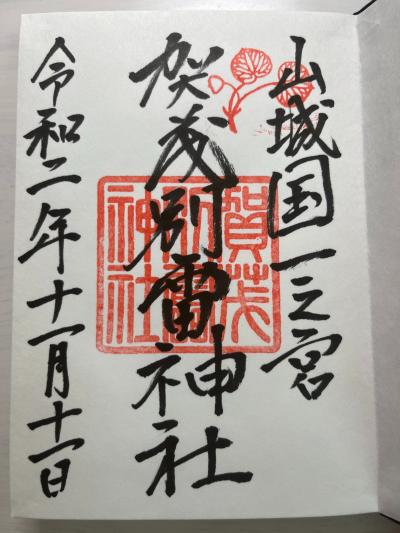 山城国一之宮
賀茂別雷神社
令和二年十一月十一日
賀茂
別雷
神社